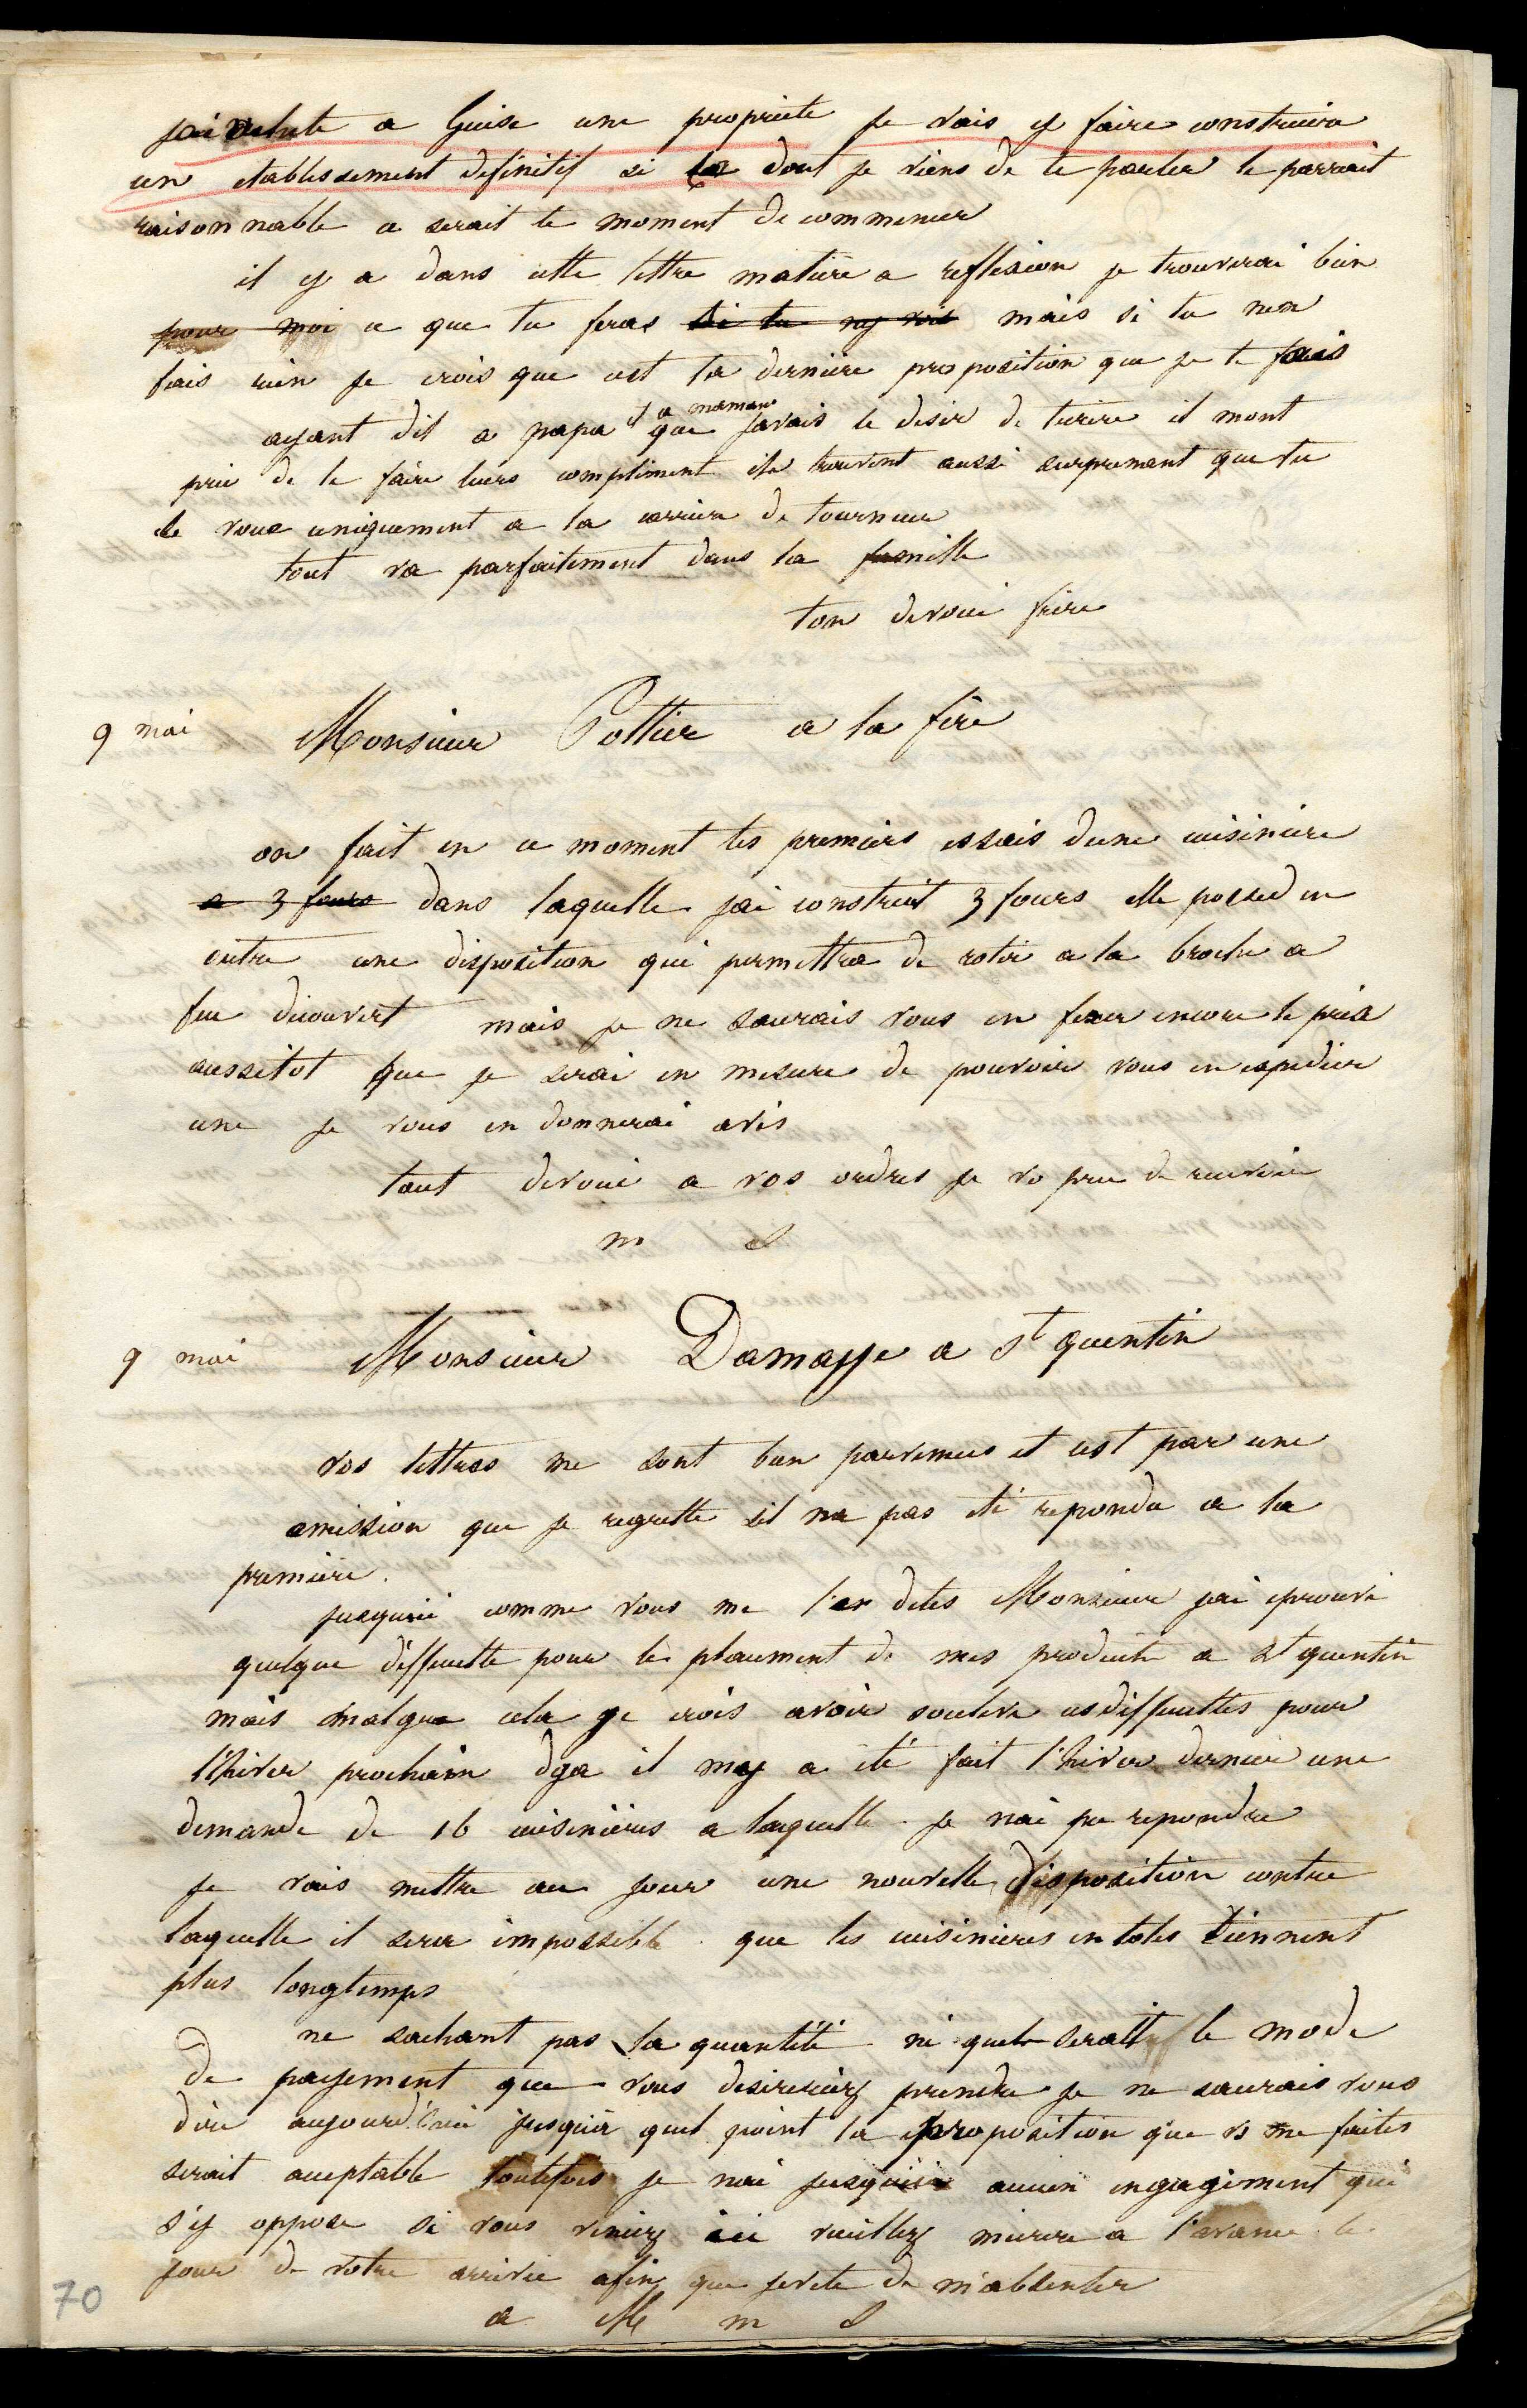 jai achete a Guise une propriete je vais y faire construire
un etablissement definitif si la dont je viens de te parler te parrait
raisonnable ce serait le moment de commencer
il y a dans cette lettre matiere a reflexion je trouverai bien
pour moi ce que tu feras si tu ny vois mais si tu nen
fais rien je crois que cest la derniere proposition que je te fais
ayant dit a papa et a maman que javais le desir de tecrire il mont
prie de te faire leurs compliment ils trouvent aussi surprenant que tu
te voue uniquement a la carriere de tourneur
tout va parfaitement dans la famille
ton devoué frere
9 mai Monsieur Pottier a la fère
on fait en ce moment les premiers essais dune cuisiniere
a 3 fours dans laquelle jai construit 3 fours elle possed en
outre une disposition qui permettra de rotir a la broche a
feu decouvert mais je ne saurais vous en fixer encore le prix
aussitot que je serai en mesure de pouvoir vous en expedier
une je vous en donnerai avis
tout devoué a vos ordres je vo prie de recevoir
m s
9 mai Monsieur Damasse a St quentin
vos lettres me sont bien parvenues et cest par une
omission que je regrette sil na pas été repondu a la
premiere.
jusquici comme vous me l'en dites Monsieur jai eprouvé
quelque difficulte pour le placement de mes produits a St quentin
mais malgre cela je crois avoir soulevé ces difficultes pour
l'hiver prochain deja il my a été fait l'hiver dernier une
demande de 16 cuisinières a laquelle je nai pu repondre
je vais mettre au jour une nouvelle disposition contre
laquelle il sera impossible que les cuisinieres en toles tiennent
plus longtemps
ne sachant pas la quantité ni quel serait le mode
de payement que vous desireriez prendre je ne saurais vous
dire aujourd'hui jusqua quel point la proposition que vs me faites
serait acceptable toutefois je nai jusquici aucun engagement qui
s'y oppose si vous veniez ici veuillez mecrire a l'avance le
jour de votre arrivée afin que jevite de m'absenter
a M m s
70